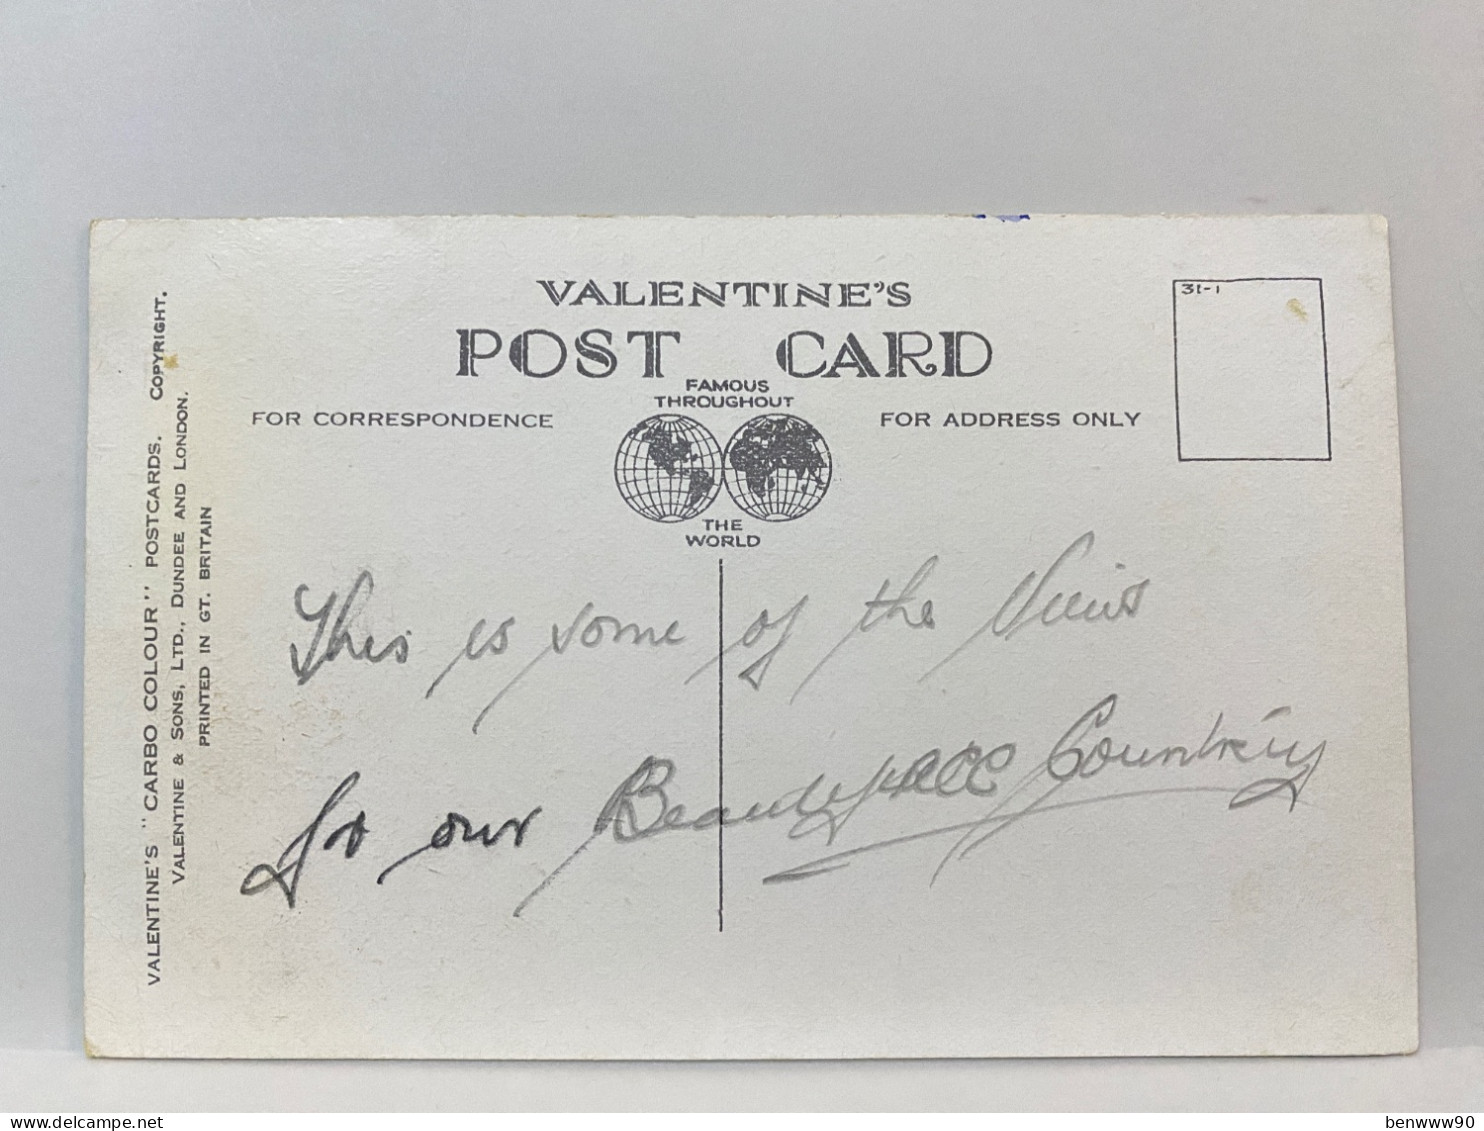 VALENTINE'S
POST CARD
FAMOUS
THROUGHOUT
THE
WORLD
FOR CORRESPONDENCE
FOR ADDRESS ONLY
31-1
VALENTINE'S "CARBO COLOUR" POSTCARDS. COPYRIGHT.
VALENTINE & SONS, LTD., DUNDEE AND LONDON.
PRINTED IN GT. BRITAIN
This is some of the
our Country
benwww90